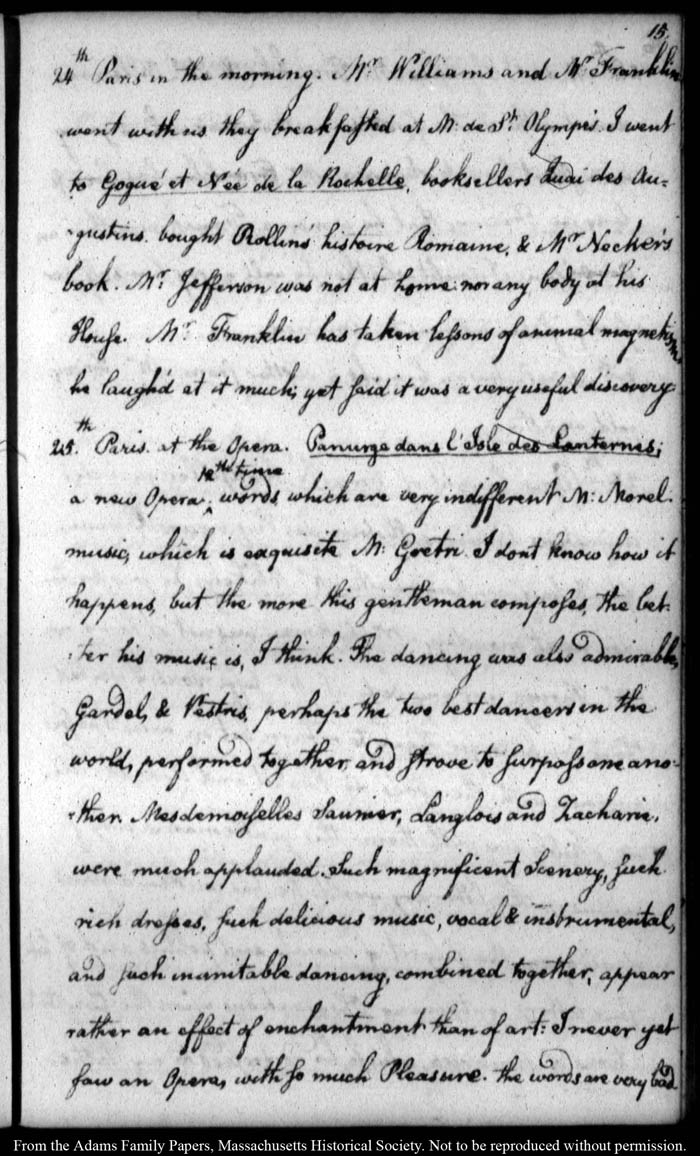 15.
24th Paris in the morning. Mr Williams and Mr Franklin
went with us they breakfasted at M: de St. Olympe's. I went
to Gogué et Née de la Rochelle, booksellers Quai des Au=
=gustins. bought Rollin's histoire Romaine, & Mr Necker's
book. Mr. Jefferson was not at home: nor any body at his
House. Mr. Franklin has taken lessons of animal magnetism.
he laugh'd at it much; yet said it was a very useful discovery.
25th. Paris. at the Opera. Panurge dans l'Isle des Lanternes;
12th time
a new Opera ‸ words, which are very indifferent M: Morel.
music, which is exquisite M: Gretri. I dont know how it
happens, but the more this gentleman composes, the bet-
-ter his music is, I think. The dancing was also admirable,
Gardel, & Vestris, perhaps the two best dancers in the
world, performed together, and strove to surpass one ano-
-ther. Mesdemoiselles Saunier, Langlois and Zacharie,
were much applauded. Such magnificent Scenery, such
rich dresses, such delicious music, vocal & instrumental,
and such inimitable dancing, combined together, appear
rather an effect of enchantment than of art: I never yet
saw an Opera, with so much Pleasure. the words are very bad
From the Adams Family Papers, Massachusetts Historical Society. Not to be reproduced without permission.